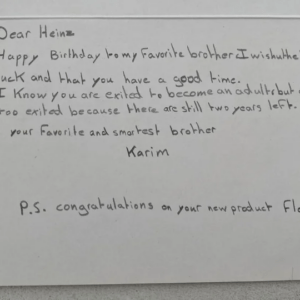 Dear Heinz
Happy Birthday to my Favorite brother I wish u the
uck and that you have a good time.
I Know you are exited to become an adult but
too exited because there are still two years left.
your Favorite and smartest brother
Karim
P.S. congratulations on your new product Fl